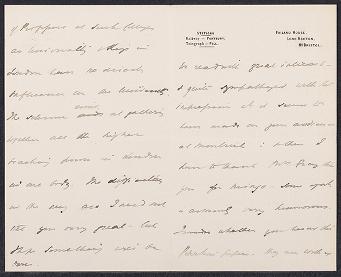 of Professors at such Colleges
as University & King's in
London have no decided
influence on the University.
The scheme aims at gathering
together all the higher
teaching power in London
into one body. The difficulties
in the way are I need not
tell you very great - but
I hope something will be
done.
STATIONS
Railway - Portbury.
Telegraph - Pill.
Failand House,
Long Ashton,
Nr Bristol.
We read with great interest &
I quite sympathised with the
impression it seems to
have made on your audience
at Montreal: & then I
have to thank Mrs. Gray &
you for
New York
is certainly very humorous.
I wonder whether you have the
papers. They are